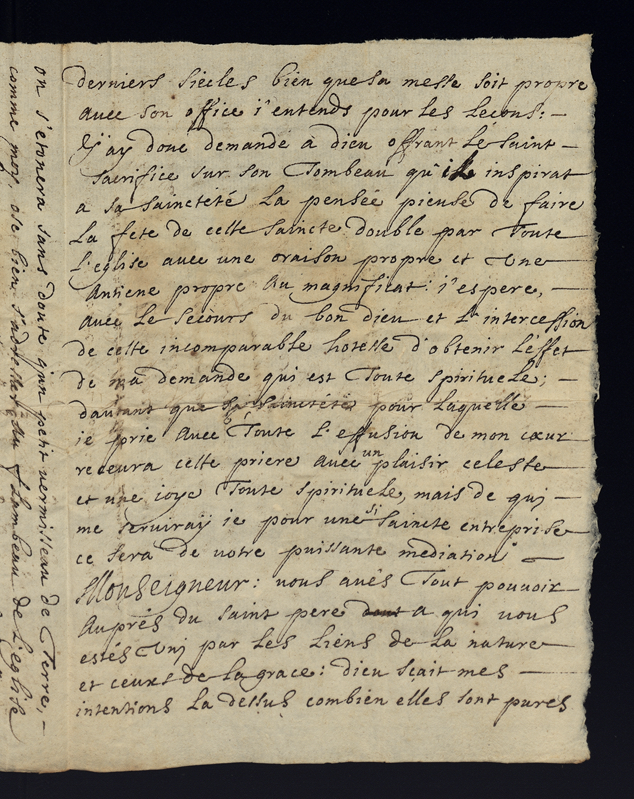 derniers siecles bien que sa messe soit propre
avec son office i'entends pour les lecons: —
J'ay donc demande a dieu offrant le saint —
sacrifice sur son Tombeau qu'il inspirat
a sa saincteté la pensée pieuse de faire
la fete de cette saincte double par Toute
l'eglise avec une oraison propre et Une
antiene propre au magnificat: i'espere, —
avec le secours du bon dieu et l'intercession
de cette incomparable hotesse d'obtenir l'effet
de ma demande qui est Toute spirituele; —
dautant que sa saincteté pour laquelle —
ie prie avec Toute l'effusion de mon cœur
recevra cette priere avec un plaisir celeste
et une ioye Toute spirituele, mais de qui —
me serviray ie pour une si saincte entreprise
ce sera de votre puissante mediation —
Monseigneur: vous avés Tout pouvoir
aupres du saint pere dont a qui vous
estés Uni par les liens de la nature
et ceux de la grace: dieu sçait mes —
intentions la dessus combien elles sont pures
on s'etonnera sans doute qu'un petit vermisseau de Terre, —
comme moy, ose bien du flambeau de l'eglise